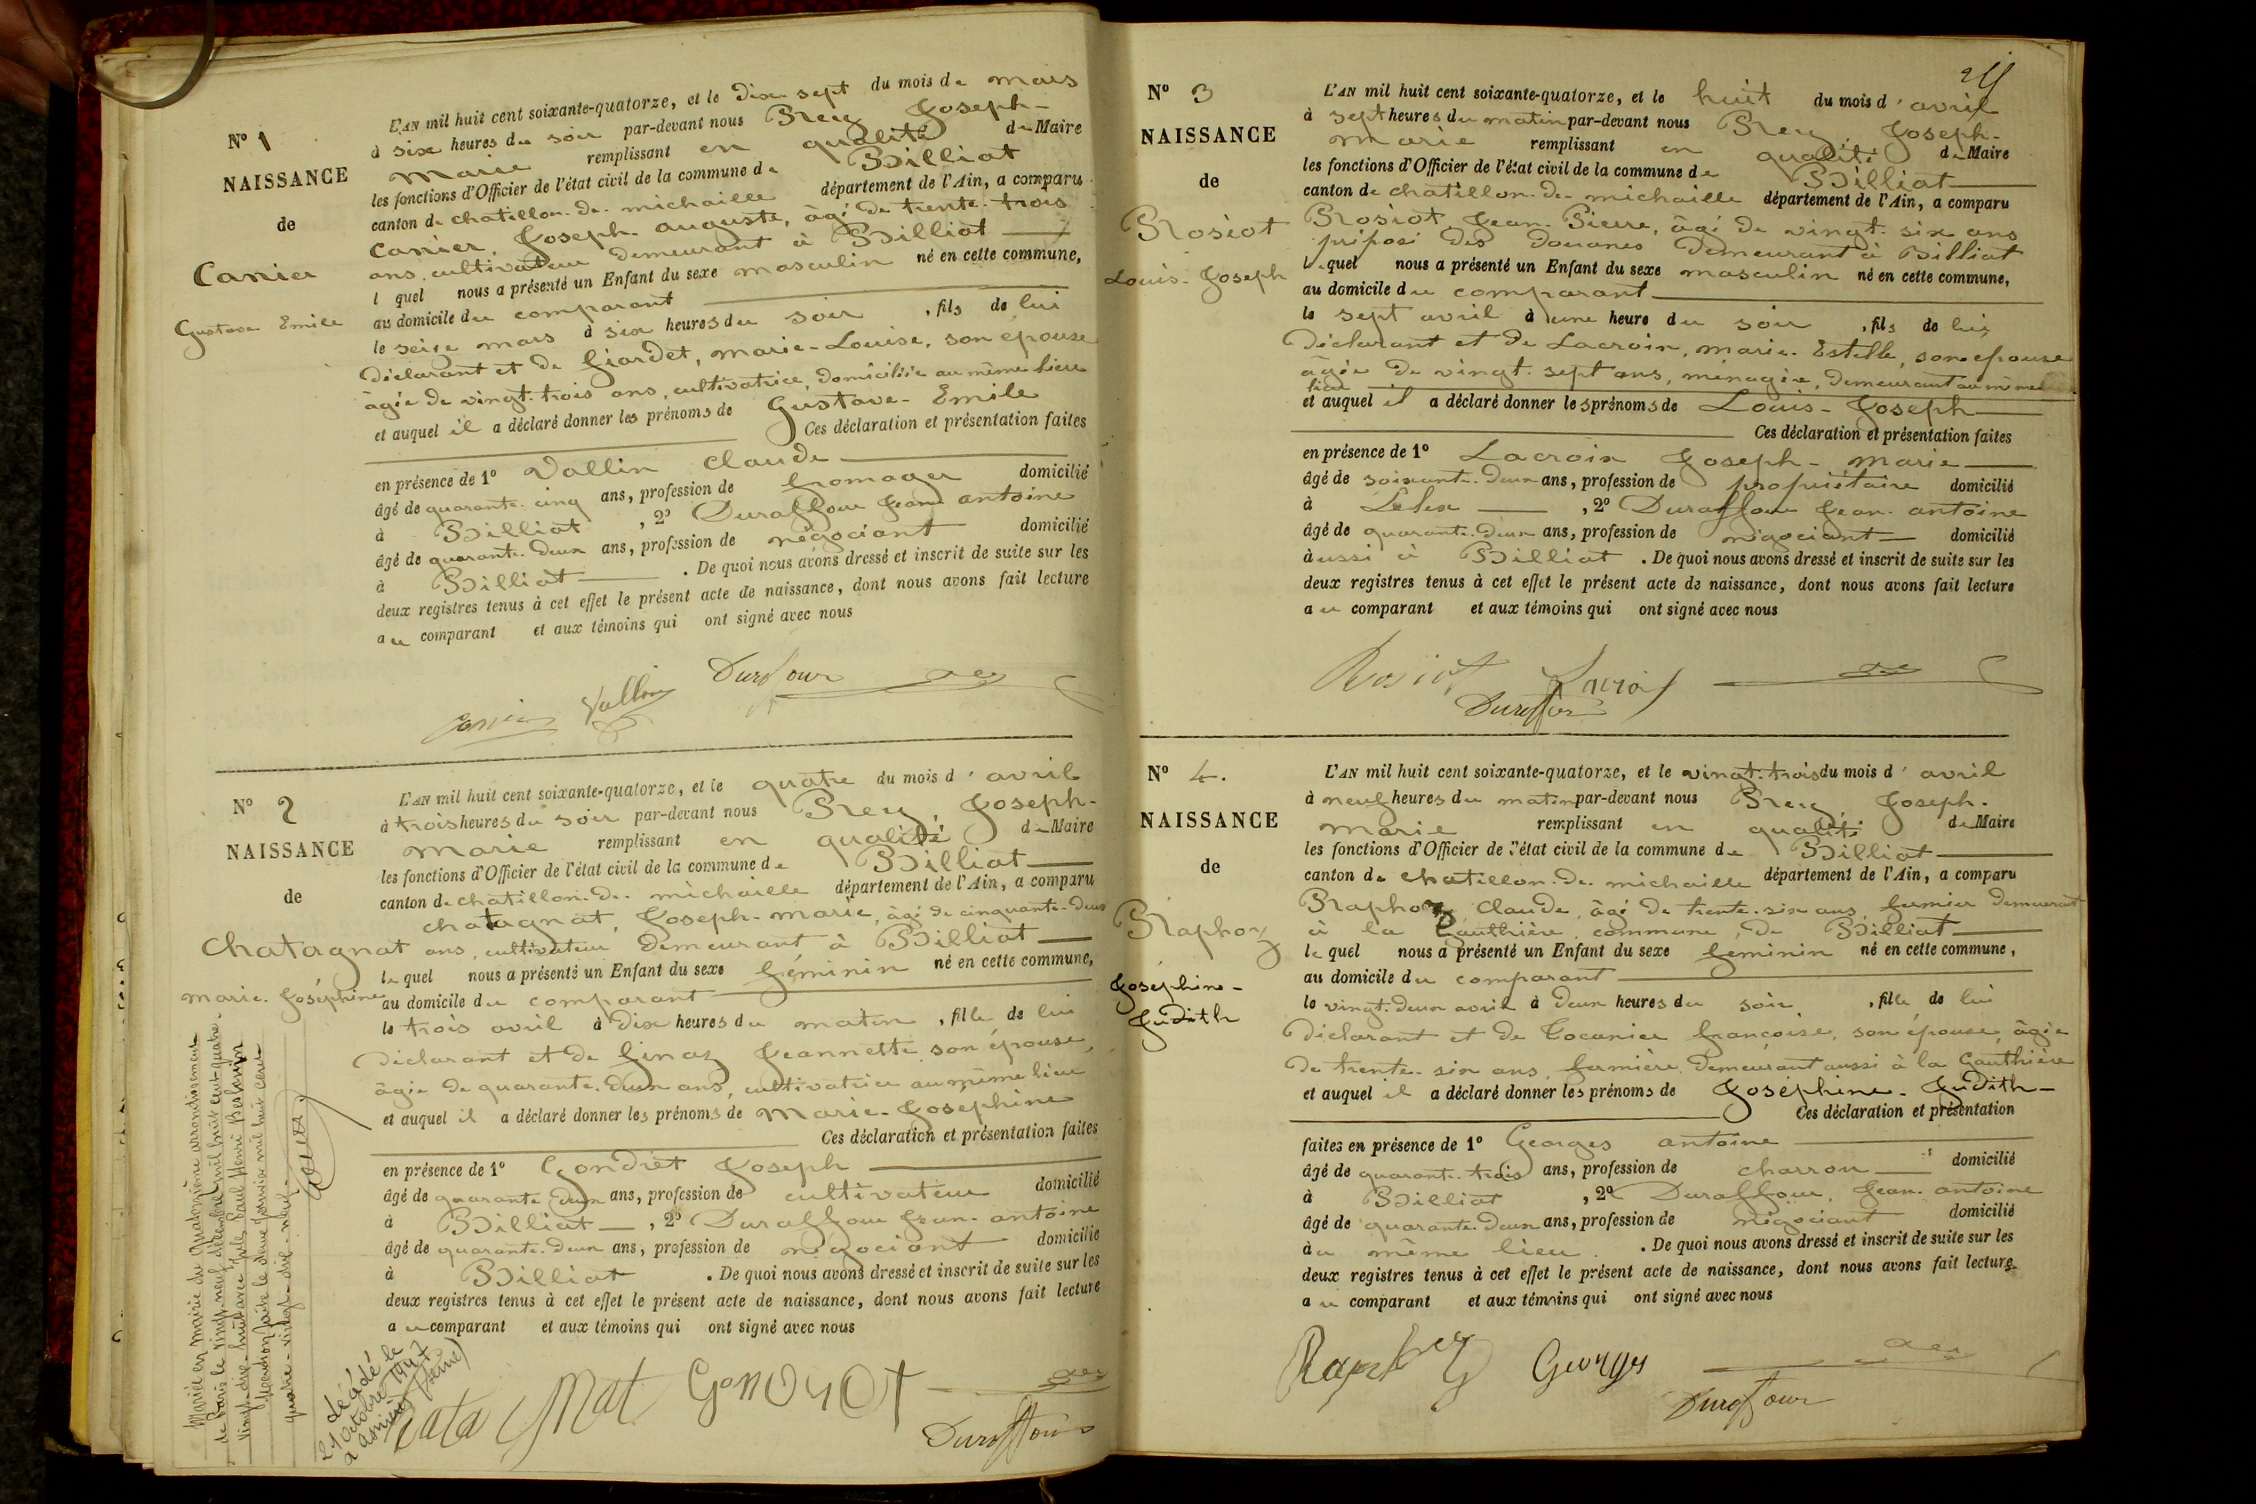 N° 1
NAISSANCE
de
Canier
Gustave Emile
L'AN mil huit cent soixante-quatorze, et le Dix-sept du mois de mars
à six heures du soir par-devant nous Rey Joseph-
marie remplissant en qualité de Maire
les fonctions d'Officier de l'état civil de la commune de Billiat
canton de chatillon-de-michaille département de l'Ain, a comparu
Canier, Joseph-auguste, âgé de trente-trois
ans, cultivateur demeurant à Billiat
l quel nous a présenté un Enfant du sexe masculin né en cette commune,
au domicile du comparant
le seize mars à six heures du soir, fils de lui
Déclarant et de Giardet, marie-Louise, son épouse
âgée de vingt-trois ans, cultivatrice, domiciliée au même lieu
et auquel il a déclaré donner les prénoms de Gustave-Emile
Ces déclaration et présentation faites
en présence de 1° Vallin Claude
âgé de quarante-cinq ans, profession de fromager domicilié
à Billiat, 2° Duraffour Jean antoine
âgé de quarante-deux ans, profession de négociant domicilié
à Billiat. De quoi nous avons dressé et inscrit de suite sur les
deux registres tenus à cet effet le présent acte de naissance, dont nous avons fait lecture
au comparant et aux témoins qui ont signé avec nous
Canier Vallin Duraffour Rey
N° 2
NAISSANCE
de
Chatagnat
marie-Joséphine
L'AN mil huit cent soixante-quatorze, et le quatre du mois d'avril
à trois heures du soir par-devant nous Rey Joseph-
marie remplissant en qualité de Maire
les fonctions d'Officier de l'état civil de la commune de Billiat
canton de chatillon-de-michaille département de l'Ain, a comparu
chatagnat, Joseph-marie, âgé de cinquante-deux
ans, cultivateur demeurant à Billiat
le quel nous a présenté un Enfant du sexe féminin né en cette commune,
au domicile du comparant
le trois avril à dix heures du matin, fille de lui
Déclarant et de Ginaz Jeannette, son épouse,
âgée de quarante-deux ans, cultivatrice au même lieu
et auquel il a déclaré donner les prénoms de Marie-Joséphine
Ces déclaration et présentation faites
en présence de 1° Gondret Joseph
âgé de quarante-deux ans, profession de cultivateur domicilié
à Billiat, 2° Duraffour Jean-antoine
âgé de quarante-deux ans, profession de négociant domicilié
à Billiat. De quoi nous avons dressé et inscrit de suite sur les
deux registres tenus à cet effet le présent acte de naissance, dont nous avons fait lecture
au comparant et aux témoins qui ont signé avec nous
Mariée en mairie du quatorzième arrondissement
de Paris le vingt-neuf décembre mil huit cent quatre-
vingt-dix-huit avec Jules Paul Henri
Mention faite le deux janvier mil huit cent
quatre-vingt-dix-neuf
décédé le
21 octobre 1947
à Asnières (Seine)
Gondret Rey
Duraffour
24
N° 3
NAISSANCE
de
Rosiot
Louis-Joseph
L'AN mil huit cent soixante-quatorze, et le huit du mois d'avril
à sept heures du matin par-devant nous Rey Joseph-
marie remplissant en qualité de Maire
les fonctions d'Officier de l'état civil de la commune de Billiat
canton de chatillon-de-michaille département de l'Ain, a comparu
Rosiot, Jean-Pierre, âgé de vingt-six ans
préposé des douanes demeurant à Billiat
lequel nous a présenté un Enfant du sexe masculin né en cette commune,
au domicile du comparant
le sept avril à une heure du soir, fils de lui
Déclarant et de Lacroix, marie-Estelle, son epouse
âgée de vingt-sept ans, ménagère, demeurant au même
lieu
et auquel il a déclaré donner les prénoms de Louis-Joseph
Ces déclaration et présentation faites
en présence de 1° Lacroix Joseph-marie
âgé de soixante-deux ans, profession de propriétaire domicilié
à Lelex, 2° Duraffour Jean-antoine
âgé de quarante-deux ans, profession de négociant domicilié
aussi à Billiat. De quoi nous avons dressé et inscrit de suite sur les
deux registres tenus à cet effet le présent acte de naissance, dont nous avons fait lecture
au comparant et aux témoins qui ont signé avec nous
Rosiot Lacroix Rey
Duraffour
N° 4.
NAISSANCE
de
Raphoz
Joséphine-
Judith
L'AN mil huit cent soixante-quatorze, et le vingt-trois du mois d'avril
à neuf heures du matin par-devant nous Rey Joseph-
marie remplissant en qualité de Maire
les fonctions d'Officier de l'état civil de la commune de Billiat
canton de chatillon-de-michaille département de l'Ain, a comparu
Raphoz, Claude, âgé de trente-six ans, fermier demeurant
à la Gauthière, commune de Billiat
le quel nous a présenté un Enfant du sexe feminin né en cette commune,
au domicile du comparant
le vingt-deux avril à deux heures du soir, fille de lui
Déclarant et de Cocanier françoise, son épouse, âgée
de trente-six ans, fermière, demeurant aussi à la Gauthière
et auquel il a déclaré donner les prénoms de Joséphine-Judith-
Ces déclaration et présentation
faites en présence de 1° Georges antoine
âgé de quarante-trois ans, profession de charron domicilié
à Billiat, 2° Duraffour, Jean-antoine
âgé de quarante-deux ans, profession de négociant domicilié
au même lieu. De quoi nous avons dressé et inscrit de suite sur les
deux registres tenus à cet effet le présent acte de naissance, dont nous avons fait lecture
au comparant et aux témoins qui ont signé avec nous
Raphoz Georges Rey
Duraffour